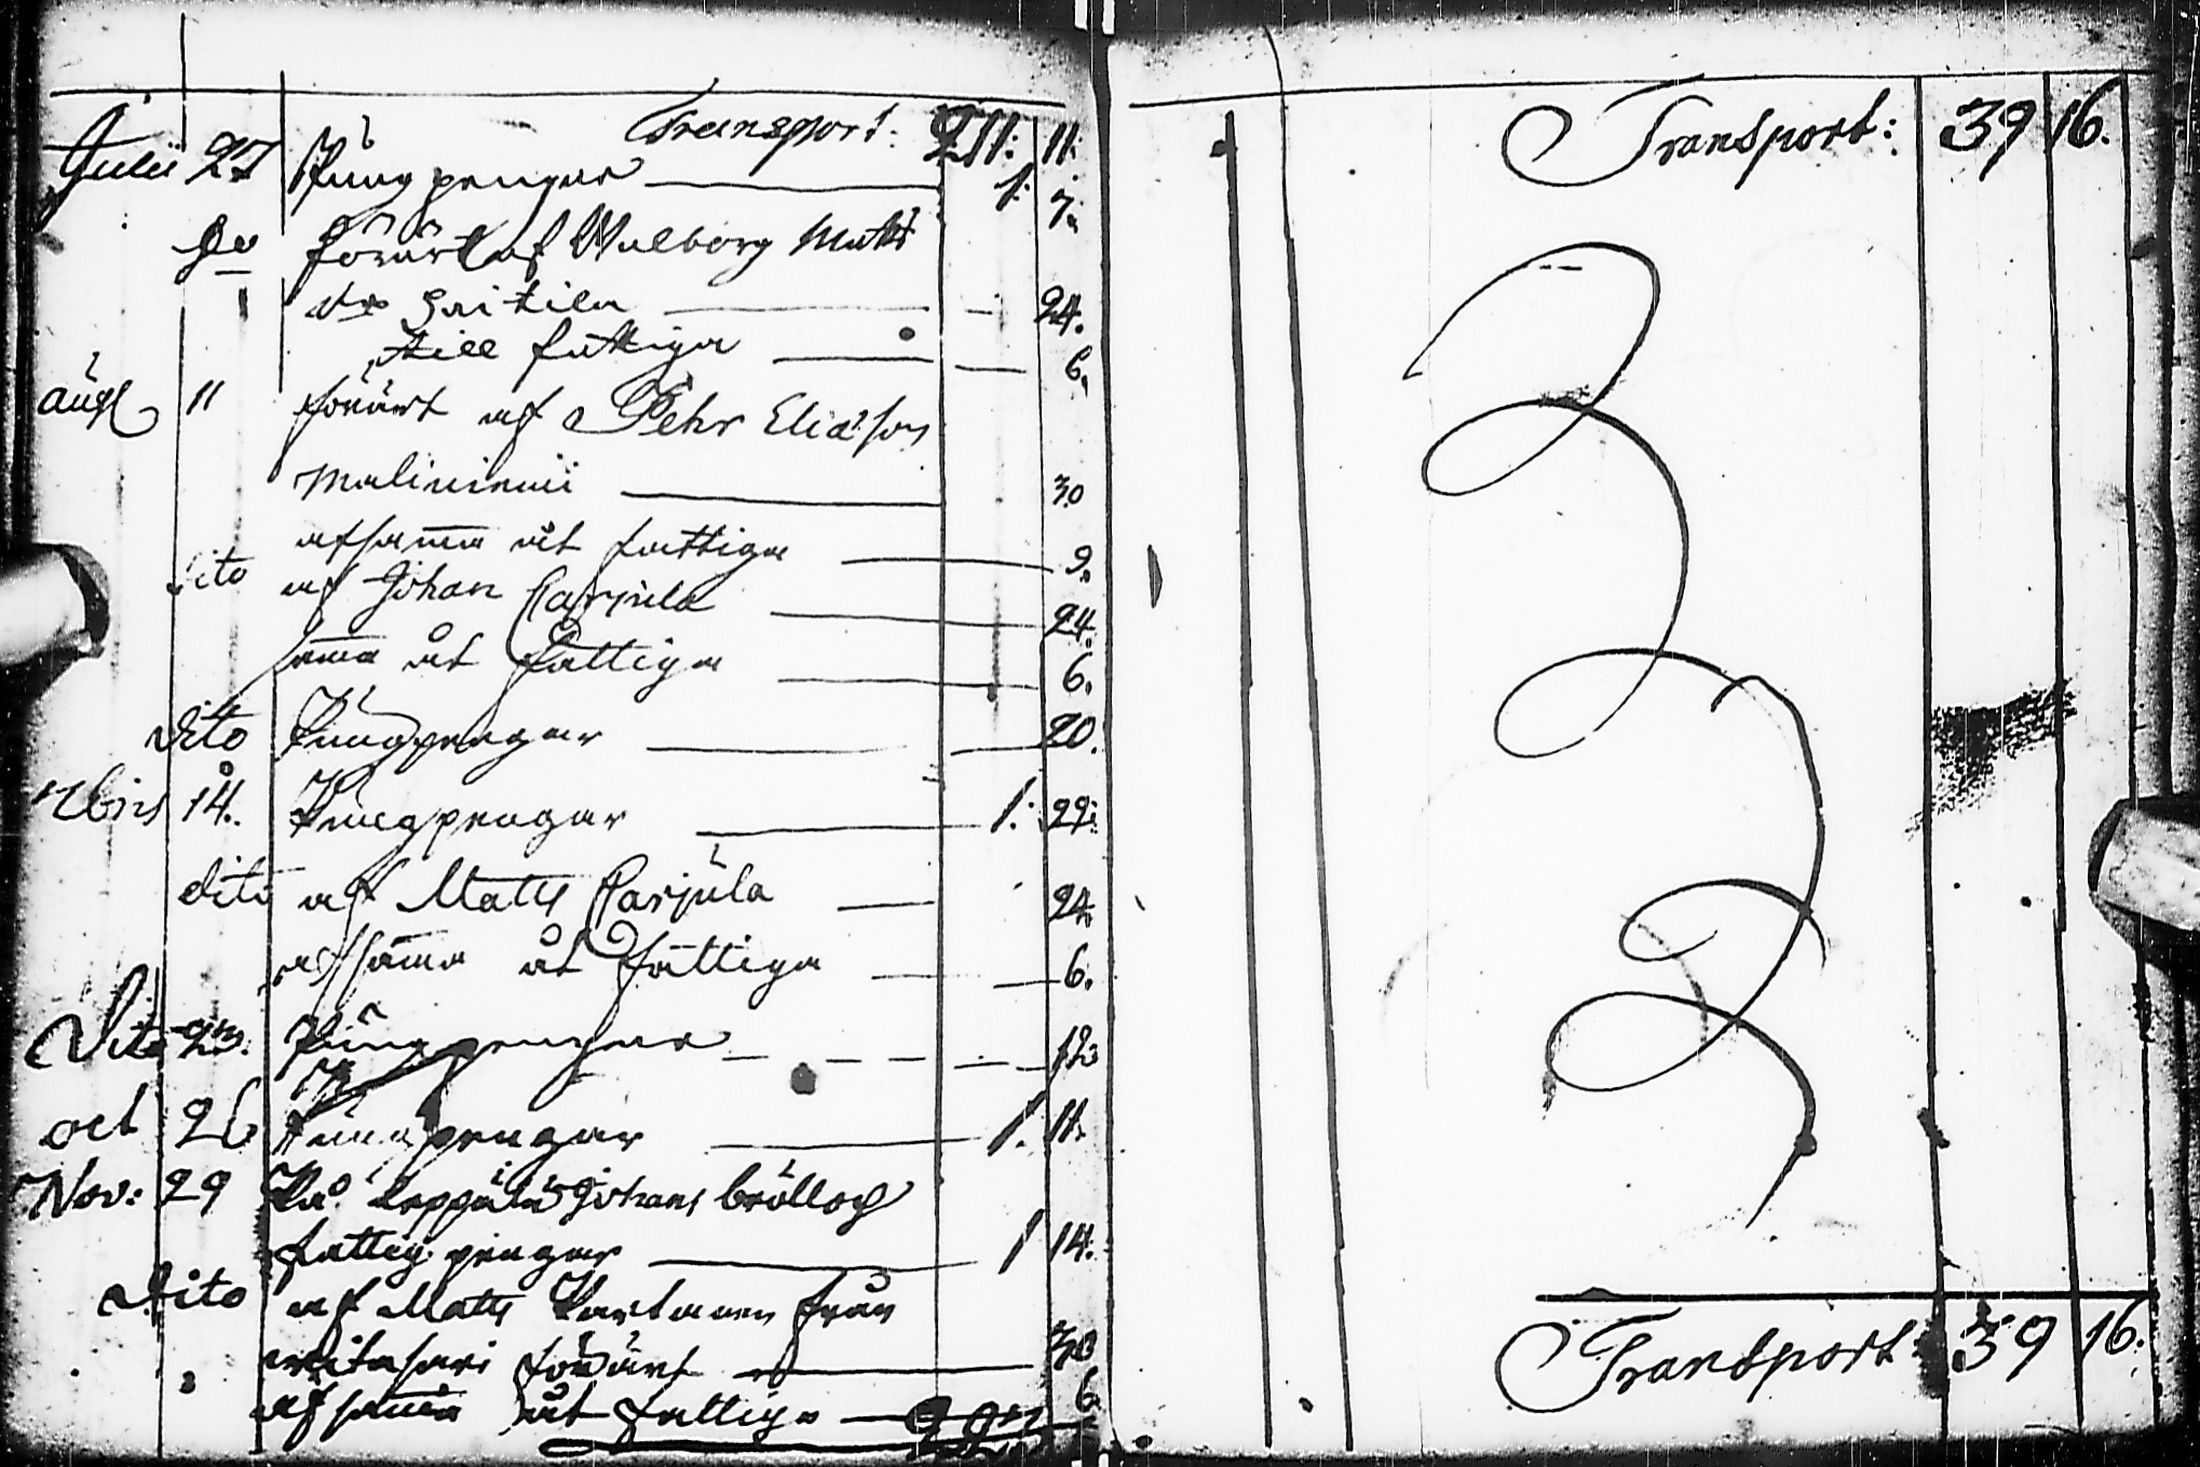 Transport: 211: 11:
Julii 27 Pungpengar 1: 7:
do förärt af Walborg Matts
dr Saitila 24.
till fattiga 6.
aug 11 förärt af Pehr Eliæson
Maliniemi 30
af samma åt fattiga 9.
dito af Johan Karjula 24.
samma åt fattiga 6.
dito Pungpengar 20.
7bris 14. Pungpengar 1: 22:
dito af Matts Karjula 24.
af samma åt fattiga 6.
Dito 23. Pungpengar 12
oct 26 Pungpengar 1. 11.
Nov: 29 På Leppälä Johans bröllop
fattig pengar 1 14:
Dito af Matts Kartanen från
förärt 30
af samma åt fattiga 6
Transport: 39 16.
Transport 39 16: